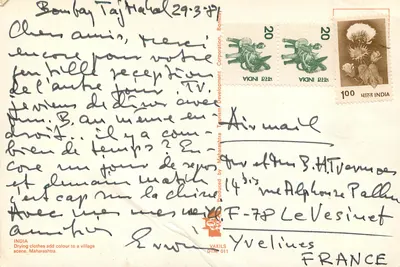 Bombay Taj Mahal 29-3-81
Chers amis, merci
encore pour votre
gentille reception
de l'autre jour TV.
Je viens de dîner avec
Mm. B. au même en-
droit.. il y a com-
bien de temps? En-
core un jour de repos
et demain matin
c'est cap sur la chine
Avec mes
amitiés
Erwin
INDIA
Drying clothes add colour to a village
scene, Maharashtra
20
भारत INDIA
20
भारत INDIA
1.00
भारत INDIA
Airmail
Mr et Mm B. H.
14 bis rue Alphonse Pallu
F-78 Le Vesinet
Yvelines
FRANCE